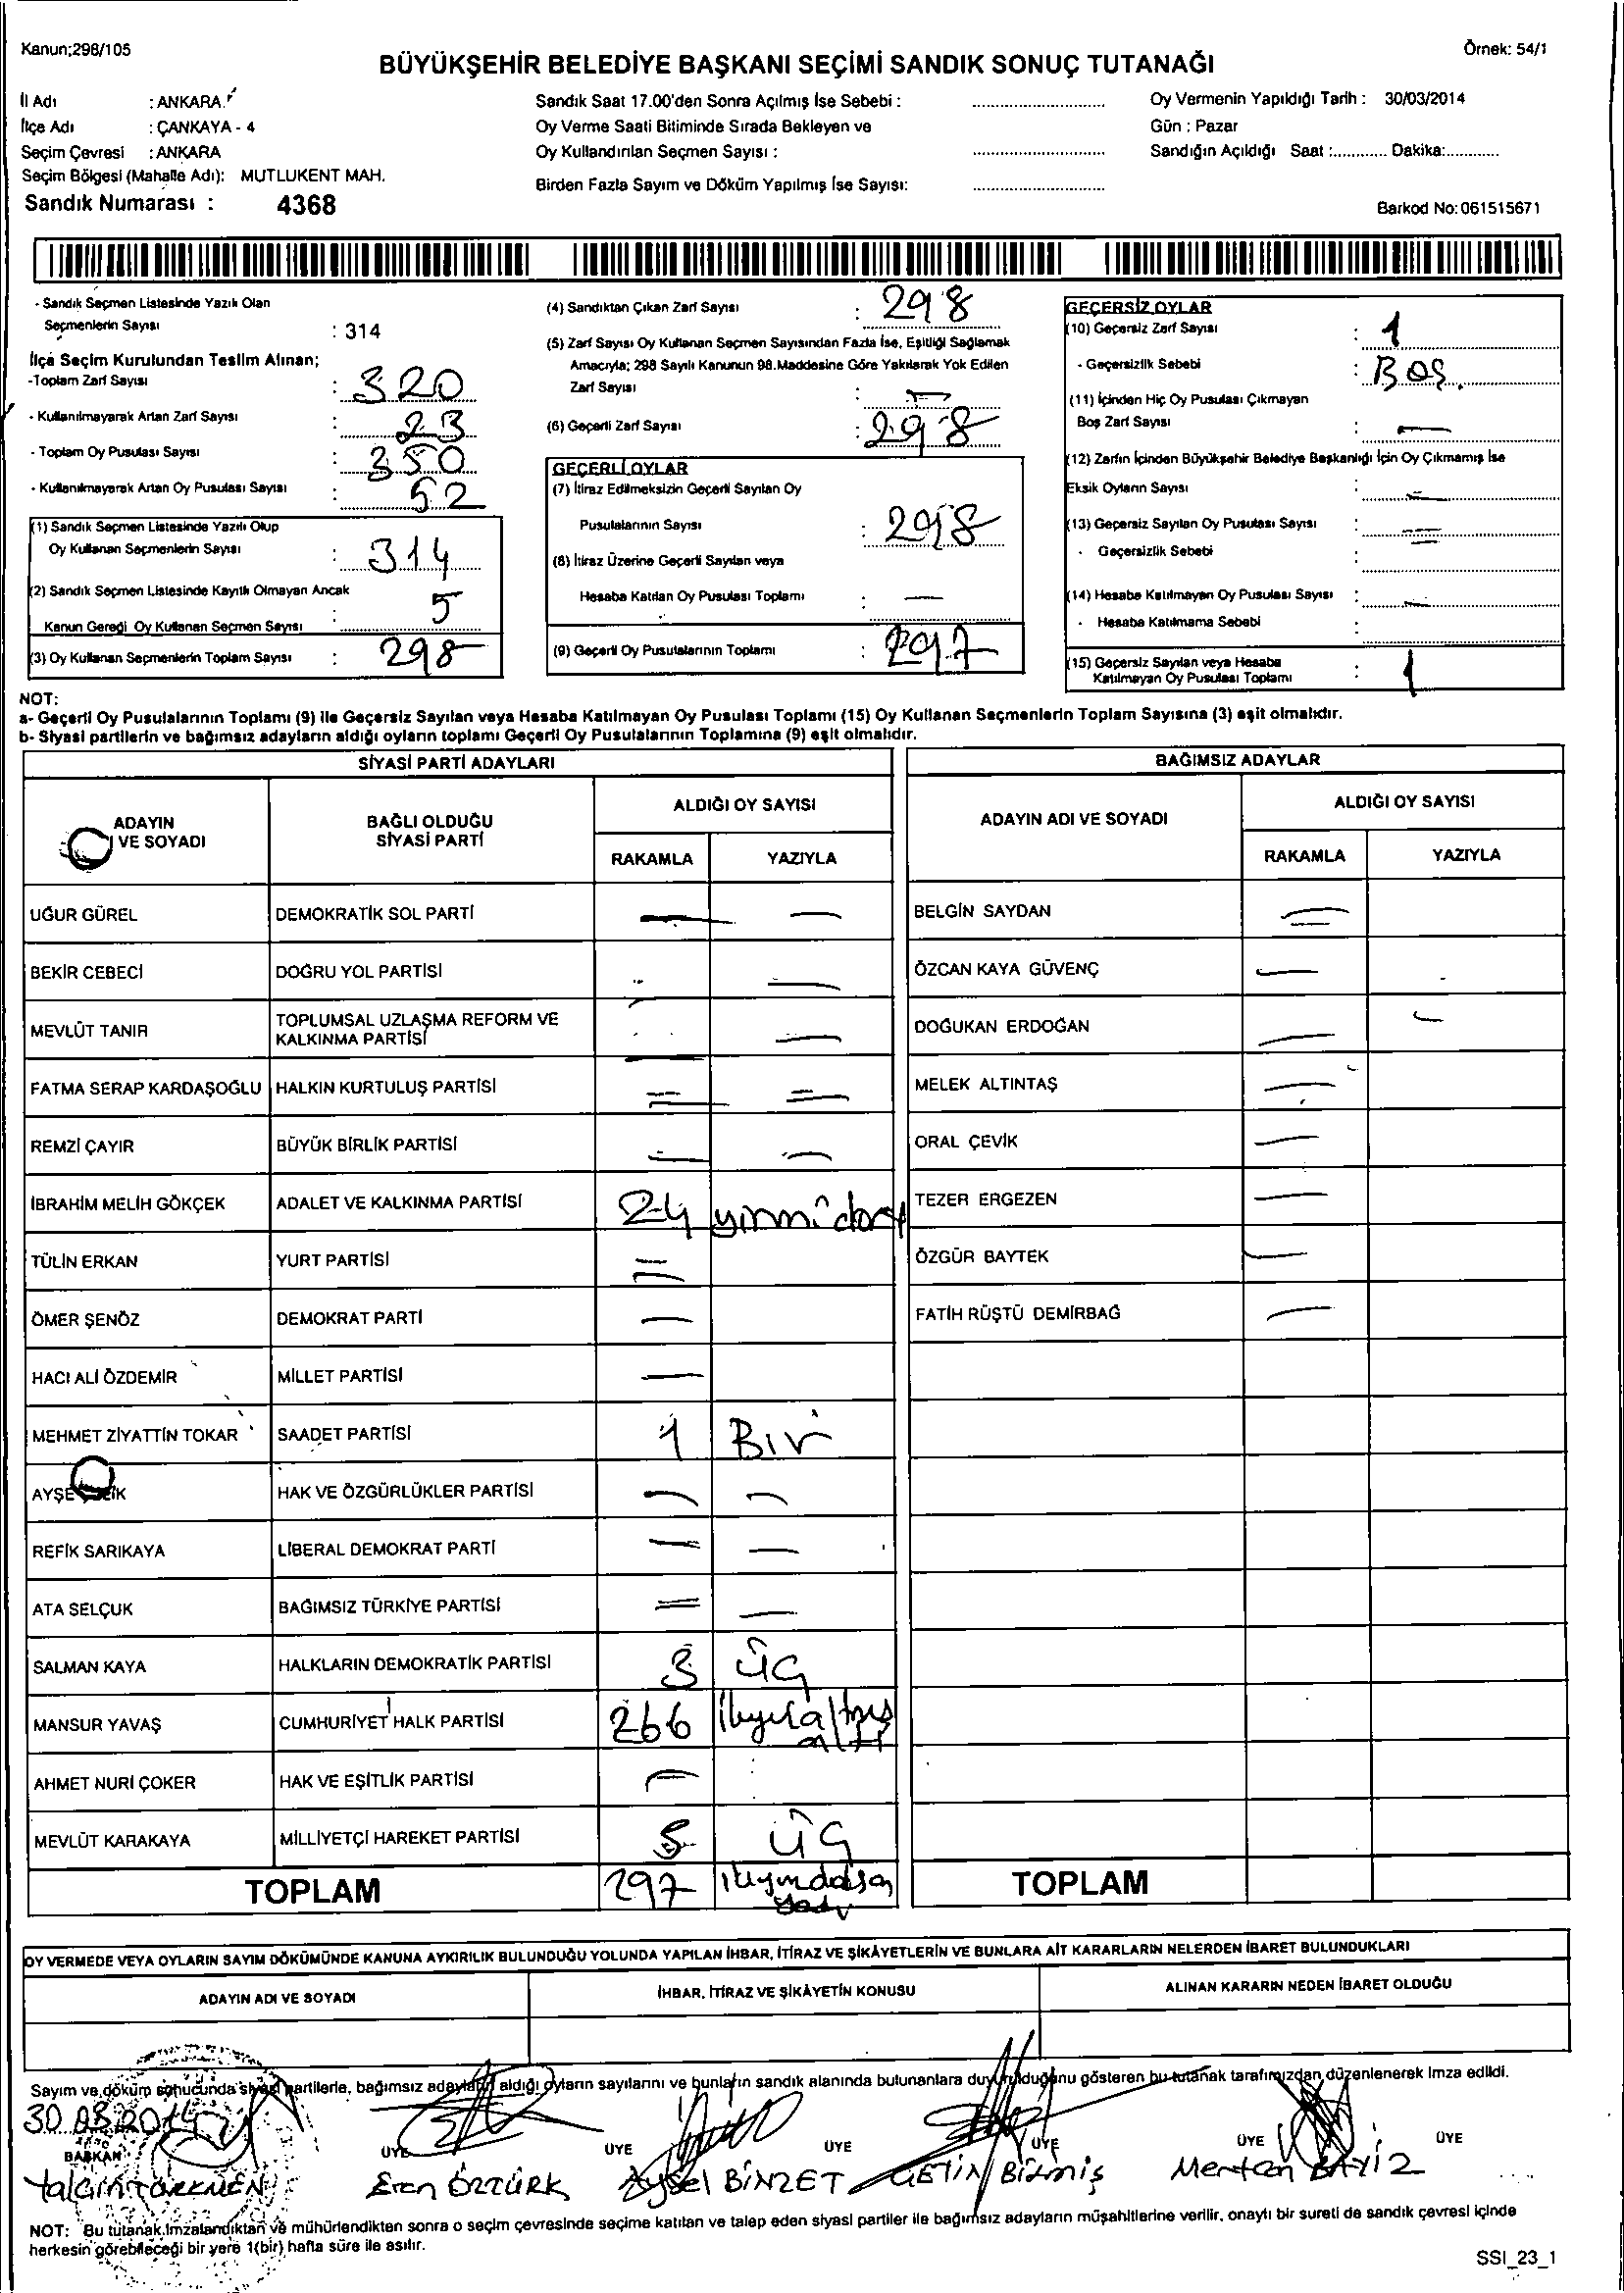 Kanun;298/105
Örnek: 54/1
BÜYÜKŞEHİR BELEDİYE BAŞKANI SEÇİMİ SANDIK SONUÇ TUTANAĞI
İl Adı : ANKARA
İlçe Adı : ÇANKAYA - 4
Seçim Çevresi : ANKARA
Seçim Bölgesi (Mahalle Adı): MUTLUKENT MAH.
Sandık Numarası : 4368
Sandık Saat 17.00'den Sonra Açılmış İse Sebebi :
Oy Verme Saati Bitiminde Sırada Bekleyen ve
Oy Kullandırılan Seçmen Sayısı :
Birden Fazla Sayım ve Döküm Yapılmış İse Sayısı:
Oy Vermenin Yapıldığı Tarih : 30/03/2014
Gün : Pazar
Sandığın Açıldığı Saat :............ Dakika:............
Barkod No:061515671
- Sandık Seçmen Listesinde Yazılı Olan
Seçmenlerin Sayısı : 314
İlçe Seçim Kurulundan Teslim Alınan;
-Toplam Zarf Sayısı : 320
- Kullanılmayarak Artan Zarf Sayısı : 23
- Toplam Oy Pusulası Sayısı : 350
- Kullanılmayarak Artan Oy Pusulası Sayısı : 52
(1) Sandık Seçmen Listesinde Yazılı Olup
Oy Kullanan Seçmenlerin Sayısı : 314
(2) Sandık Seçmen Listesinde Kayıtlı Olmayan Ancak
Kanun Gereği Oy Kullanan Seçmen Sayısı : 5
(3) Oy Kullanan Seçmenlerin Toplam Sayısı : 298
(4) Sandıktan Çıkan Zarf Sayısı : 298
(5) Zarf Sayısı Oy Kullanan Seçmen Sayısından Fazla İse, Eşitliği Sağlamak
Amacıyla; 298 Sayılı Kanunun 98.Maddesine Göre Yakılarak Yok Edilen
Zarf Sayısı : —
(6) Geçerli Zarf Sayısı : 298
GEÇERLİ OYLAR
(7) İtiraz Edilmeksizin Geçerli Sayılan Oy
Pusulalarının Sayısı : 298
(8) İtiraz Üzerine Geçerli Sayılan veya
Hesaba Katılan Oy Pusulası Toplamı : —
(9) Geçerli Oy Pusulalarının Toplamı : 297
GEÇERSİZ OYLAR
(10) Geçersiz Zarf Sayısı : 1
- Geçersizlik Sebebi : Boş.
(11) İçinden Hiç Oy Pusulası Çıkmayan
Boş Zarf Sayısı : —
(12) Zarfın İçinden Büyükşehir Belediye Başkanlığı İçin Oy Çıkmamış İse
Eksik Oyların Sayısı : —
(13) Geçersiz Sayılan Oy Pusulası Sayısı : —
- Geçersizlik Sebebi : —
(14) Hesaba Katılmayan Oy Pusulası Sayısı : —
- Hesaba Katılmama Sebebi :
(15) Geçersiz Sayılan veya Hesaba
Katılmayan Oy Pusulası Toplamı : 1
NOT:
a- Geçerli Oy Pusulalarının Toplamı (9) ile Geçersiz Sayılan veya Hesaba Katılmayan Oy Pusulası Toplamı (15) Oy Kullanan Seçmenlerin Toplam Sayısına (3) eşit olmalıdır.
b- Siyasi partilerin ve bağımsız adayların aldığı oyların toplamı Geçerli Oy Pusulalarının Toplamına (9) eşit olmalıdır.
SİYASİ PARTİ ADAYLARI
ADAYIN
VE SOYADI
BAĞLI OLDUĞU
SİYASİ PARTİ
ALDIĞI OY SAYISI
RAKAMLA YAZIYLA
UĞUR GÜREL DEMOKRATİK SOL PARTİ — —
BEKİR CEBECİ DOĞRU YOL PARTİSİ —
MEVLÜT TANIR TOPLUMSAL UZLAŞMA REFORM VE
KALKINMA PARTİSİ —
FATMA SERAP KARDAŞOĞLU HALKIN KURTULUŞ PARTİSİ — —
REMZİ ÇAYIR BÜYÜK BİRLİK PARTİSİ — —
İBRAHİM MELİH GÖKÇEK ADALET VE KALKINMA PARTİSİ 24 yirmi dört
TÜLİN ERKAN YURT PARTİSİ —
ÖMER ŞENÖZ DEMOKRAT PARTİ —
HACI ALİ ÖZDEMİR MİLLET PARTİSİ —
MEHMET ZİYATTİN TOKAR SAADET PARTİSİ 1 Bir
AYŞE HAK VE ÖZGÜRLÜKLER PARTİSİ — —
REFİK SARIKAYA LİBERAL DEMOKRAT PARTİ — —
ATA SELÇUK BAĞIMSIZ TÜRKİYE PARTİSİ — —
SALMAN KAYA HALKLARIN DEMOKRATİK PARTİSİ 3 üç
MANSUR YAVAŞ CUMHURİYET HALK PARTİSİ 266 ikiyüzaltmış
altı
AHMET NURİ ÇOKER HAK VE EŞİTLİK PARTİSİ —
MEVLÜT KARAKAYA MİLLİYETÇİ HAREKET PARTİSİ 3 üç
TOPLAM 297
BAĞIMSIZ ADAYLAR
ADAYIN ADI VE SOYADI
ALDIĞI OY SAYISI
RAKAMLA YAZIYLA
BELGİN SAYDAN —
ÖZCAN KAYA GÜVENÇ —
DOĞUKAN ERDOĞAN — —
MELEK ALTINTAŞ —
ORAL ÇEVİK —
TEZER ERGEZEN —
ÖZGÜR BAYTEK —
FATİH RÜŞTÜ DEMİRBAĞ —
TOPLAM
OY VERMEDE VEYA OYLARIN SAYIM DÖKÜMÜNDE KANUNA AYKIRILIK BULUNDUĞU YOLUNDA YAPILAN İHBAR, İTİRAZ VE ŞİKÂYETLERİN VE BUNLARA AİT KARARLARIN NELERDEN İBARET BULUNDUKLARI
ADAYIN ADI VE SOYADI
İHBAR, İTİRAZ VE ŞİKÂYETİN KONUSU
ALINAN KARARIN NEDEN İBARET OLDUĞU
Sayım ve döküm sonucunda siyasi partilerle, bağımsız adayların aldığı oyların sayılarını ve bunların sandık alanında bulunanlara duyurulduğunu gösteren bu tutanak tarafımızdan düzenlenerek imza edildi.
30.03.2014
BAŞKAN ÜYE ÜYE ÜYE ÜYE ÜYE ÜYE
Yalçın TÜRKMEN Eren ÖZTÜRK Aysel BİNZET ÇETİN Bitmiş Mertcan BAYİZ
NOT: Bu tutanak imzalandıktan ve mühürlendikten sonra o seçim çevresinde seçime katılan ve talep eden siyasi partiler ile bağımsız adayların müşahitlerine verilir, onaylı bir sureti de sandık çevresi içinde
herkesin görebileceği bir yere 1(bir) hafta süre ile asılır.
SSI_23_1